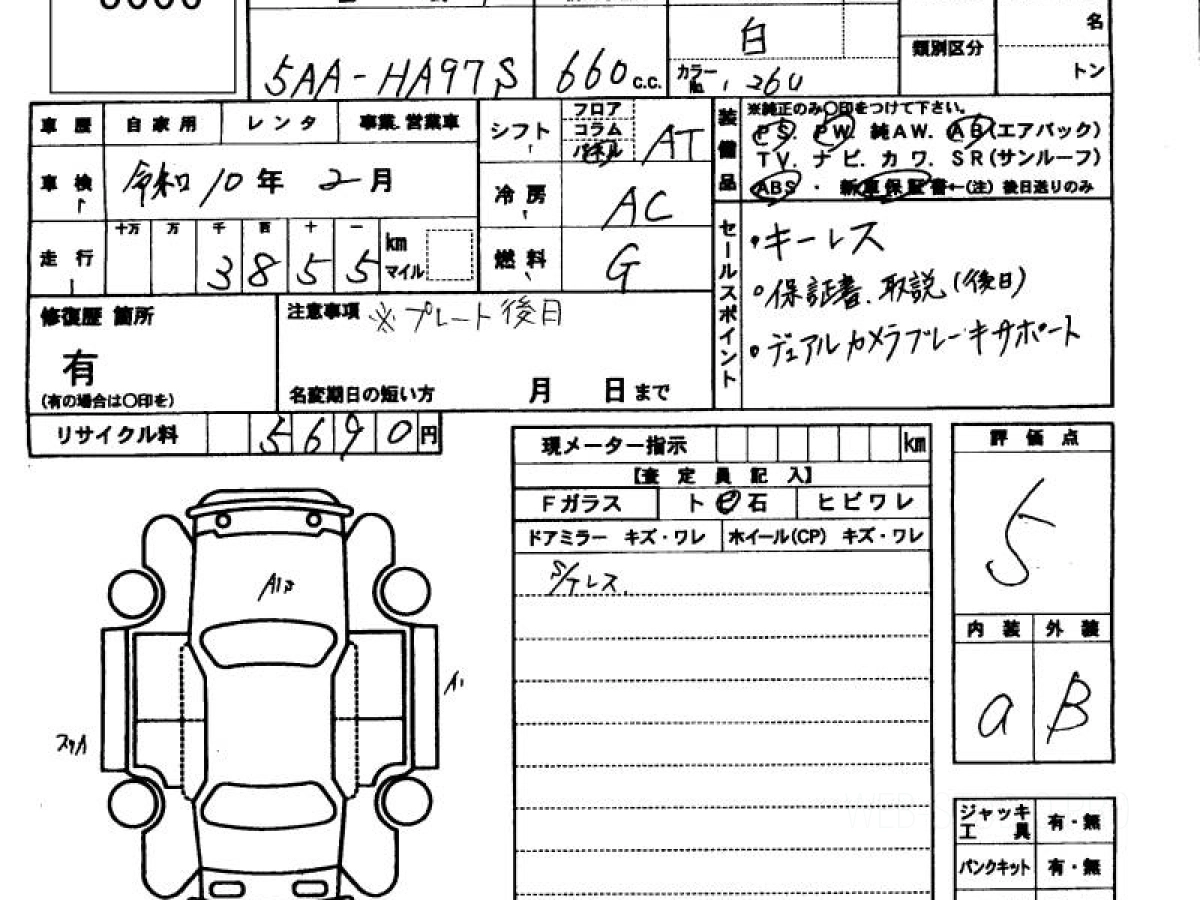 白
名
類別区分
5AA-HA97S
660 c.c.
カラー No. 26U
トン
車歴 自家用 レンタ 事業.営業車
シフト フロア コラム パネル AT
車検 令和10年 2月
冷房 AC
走行 十万 万 千 百 十 一 km マイル
3 8 5 5
燃料 G
装備品 ※純正のみ〇印をつけて下さい。
PS. PW. 純AW. AB(エアバック)
TV. ナビ. カワ. SR(サンルーフ)
ABS ・ 新車保証書←(注) 後日送りのみ
セールスポイント
・キーレス
・保証書、取説(後日)
・デュアルカメラブレーキサポート
修復歴 箇所
有
(有の場合は〇印を)
注意事項 ※プレート後日
名変期日の短い方 月 日まで
リサイクル料 5 6 9 0 円
現メーター指示 km
【査定員記入】
Fガラス ト ビ 石 ヒビワレ
ドアミラー キズ・ワレ ホイール(CP) キズ・ワレ
S/テレス.
評価点
5
内装 外装
a B
A1
ジャッキ工具 有・無
パンクキット 有・無